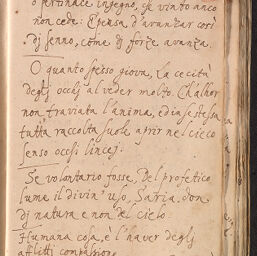 o pertinace ingegno, se vinto anco
non cede: E pensa d'avanzar così
dj senno, come dj forze avanza.
O quanto spesso giova, la cecità
degli occhj al veder molto. Ch'alhor
non traviata l'anima, ed in se stessa
tutta raccolta suole aprir nel cieco
senso occhi lincej.
Se volontario fosse. Del profetico
lume il divin' uso, Saria, don
dj natura e non del Cielo.
Humana cosa, è l'haver degli
afflitti compassione